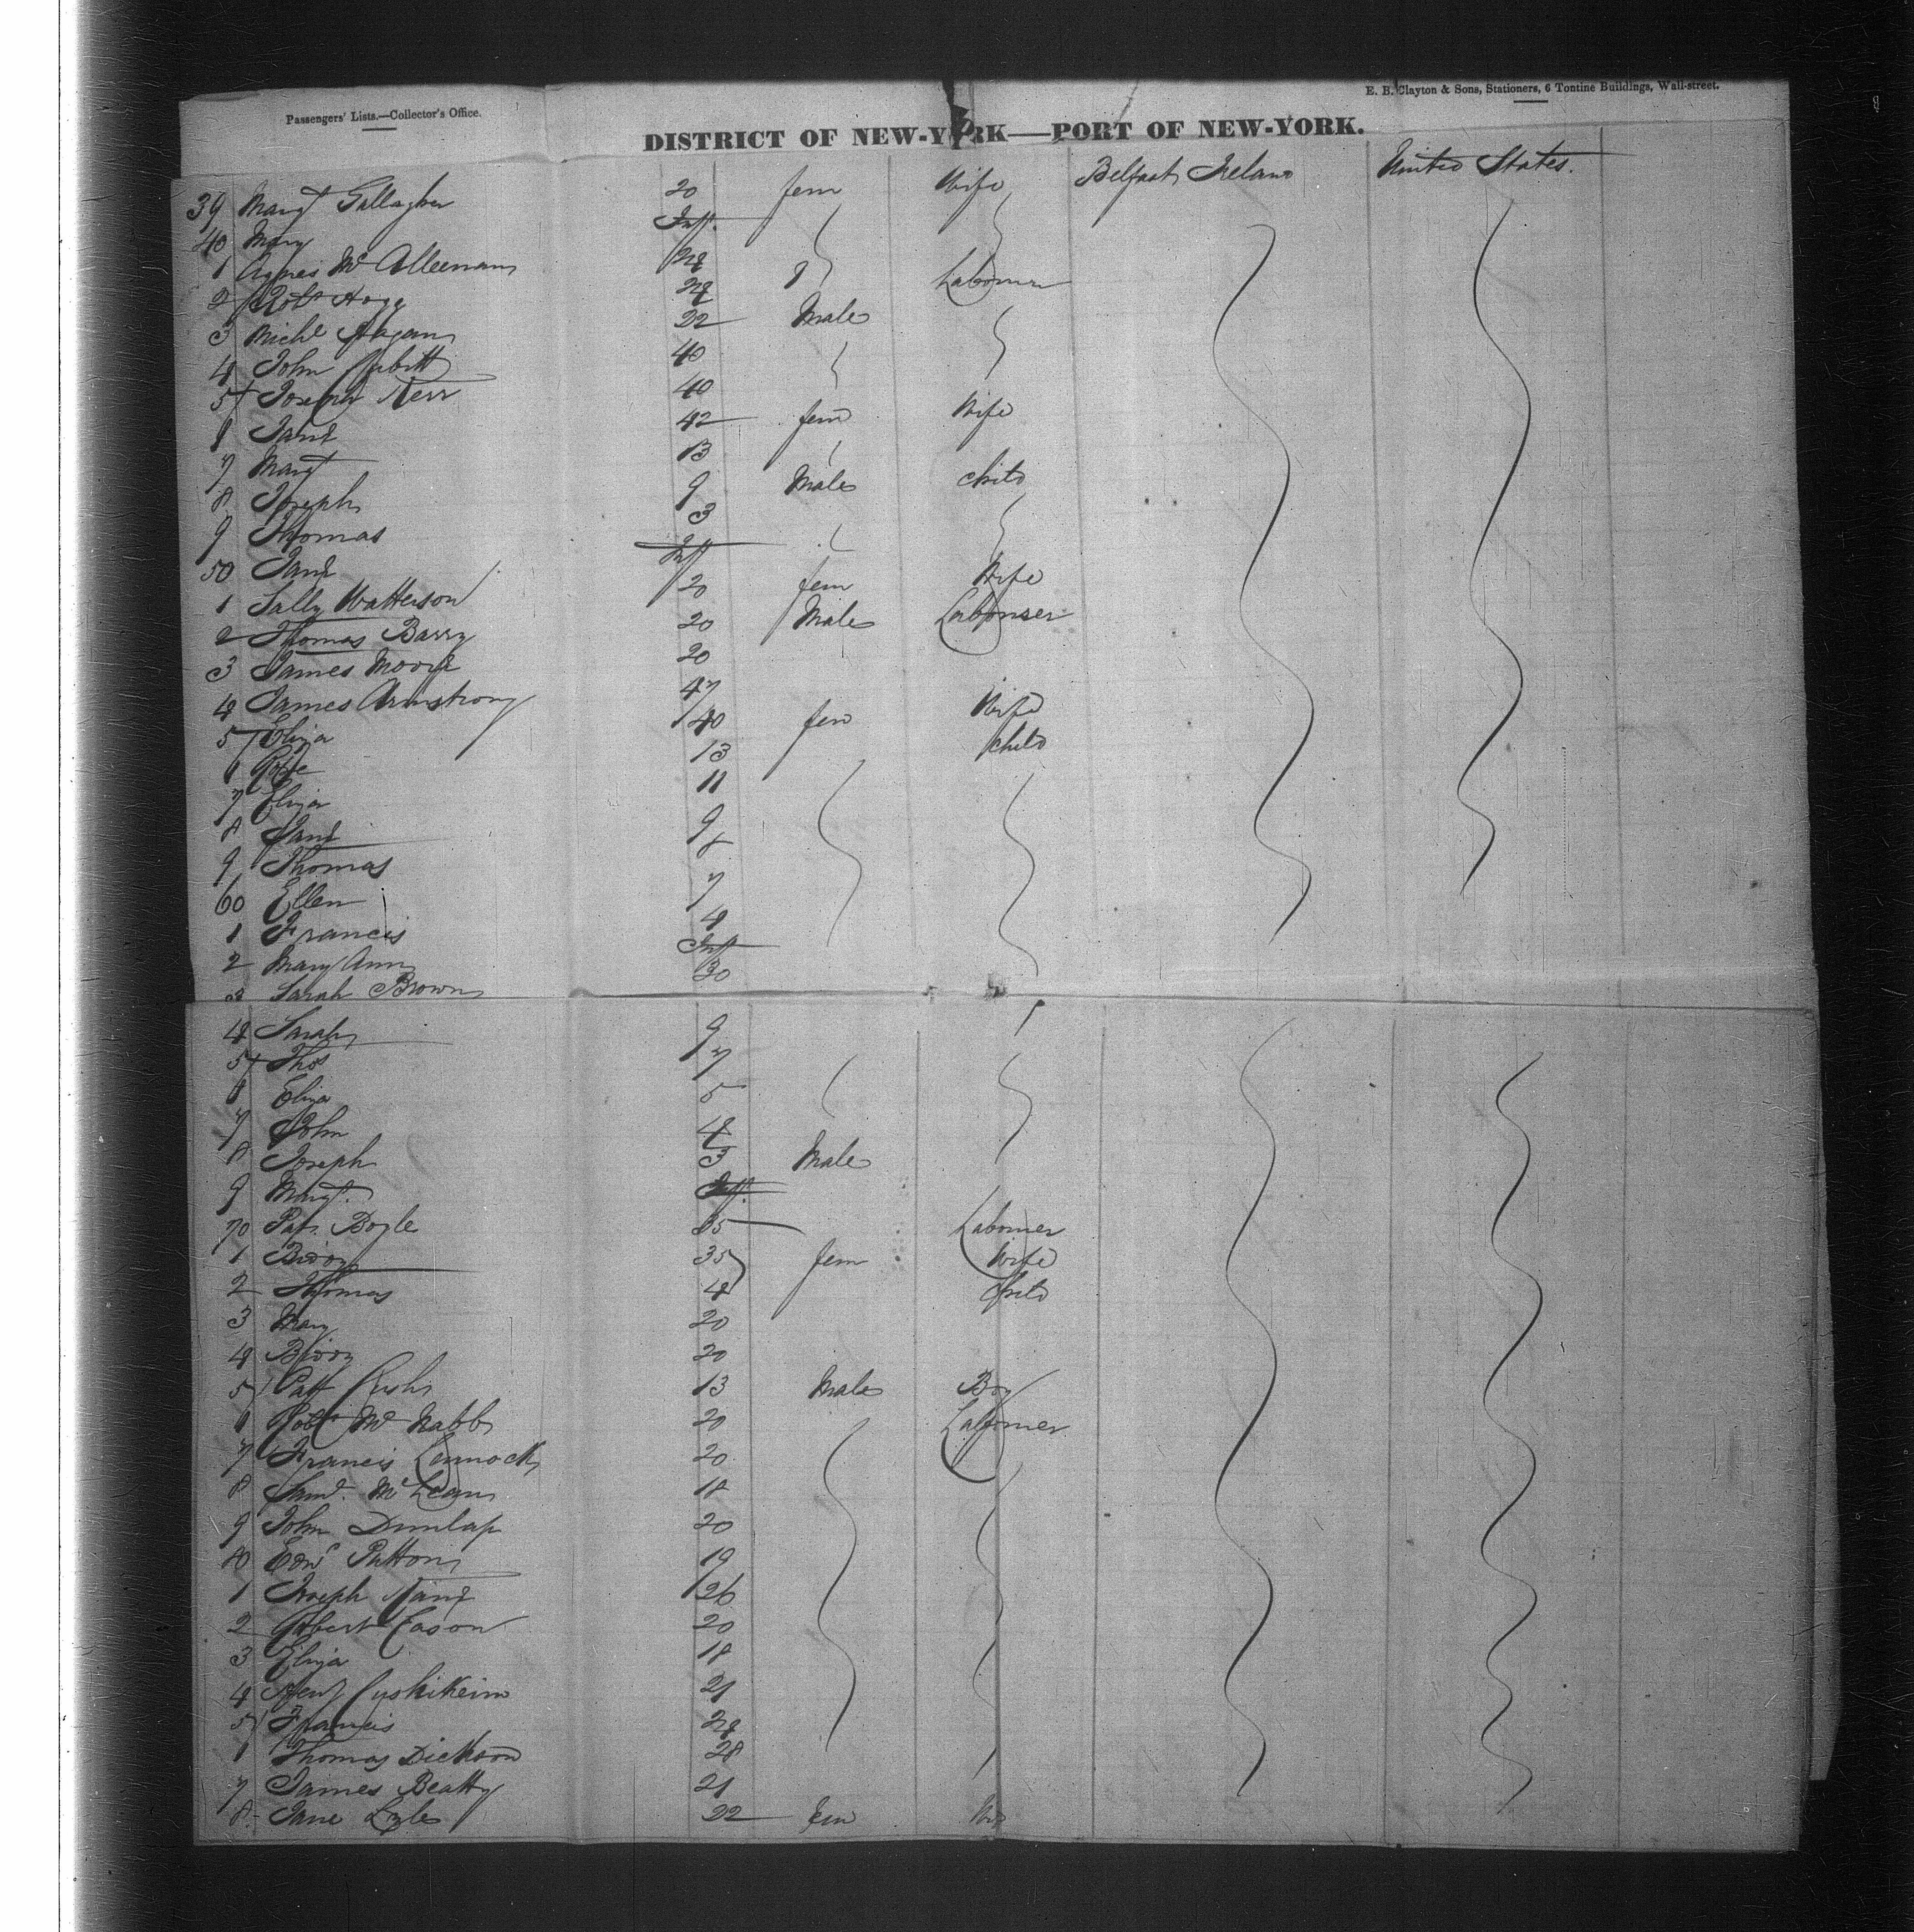 Passengers' Lists.—Collector's Office.
E. B. Clayton & Sons, Stationers, 6 Tontine Buildings, Wall-street.
DISTRICT OF NEW-YORK—PORT OF NEW-YORK.
39 Margt Gallagher 20 fem Wife Belfast Ireland United States.
40 Mary Inft.
1 Agnes Mc Alleenan 24
2 Robt Hogg 24 Labourer
3 Michl Hagan 22 Male
4 John Nibitt 40
5 Joseph Kerr 40
6 Jane 42 fem Wife
7 Margt 13
8 Joseph 9 Male child
9 Thomas 3
50 Jane Inft
1 Sally Watterson 20 fem Wife
2 Thomas Barry 20 Male Labourer
3 James Moore 20
4 James Armstrong 47
5 Eliza 40 fem Wife
6 13 child
7 Eliza 11
8 Jane 9
9 Thomas 8
60 Ellen 7
1 Francis 4
2 Mary Ann Inft
3 Sarah Brown 30
4 Sarah 9
5 Thos 7
6 Eliza 5
7 John 4
8 Joseph 3 Male
9 Margt. Inft.
70 Pat. Boyle 35 Labourer
1 Biddy 35 fem Wife
2 Thomas 4 child
3 Mary 20
4 Biddy 20
5 Patt Rush 13 Male Boy
6 Robt Mc Nabb 20 Labourer
7 Francis Lennock 20
8 Saml. Mc Lean 18
9 John Dunlap 20
80 Edwd Patton 19
1 Joseph Kane 26
2 Robert Eason 20
3 Eliza 18
4 21
5 Francis 24
6 Thomas Dickson 28
7 James Beatty 21
8 Jane Lyle 22 fem